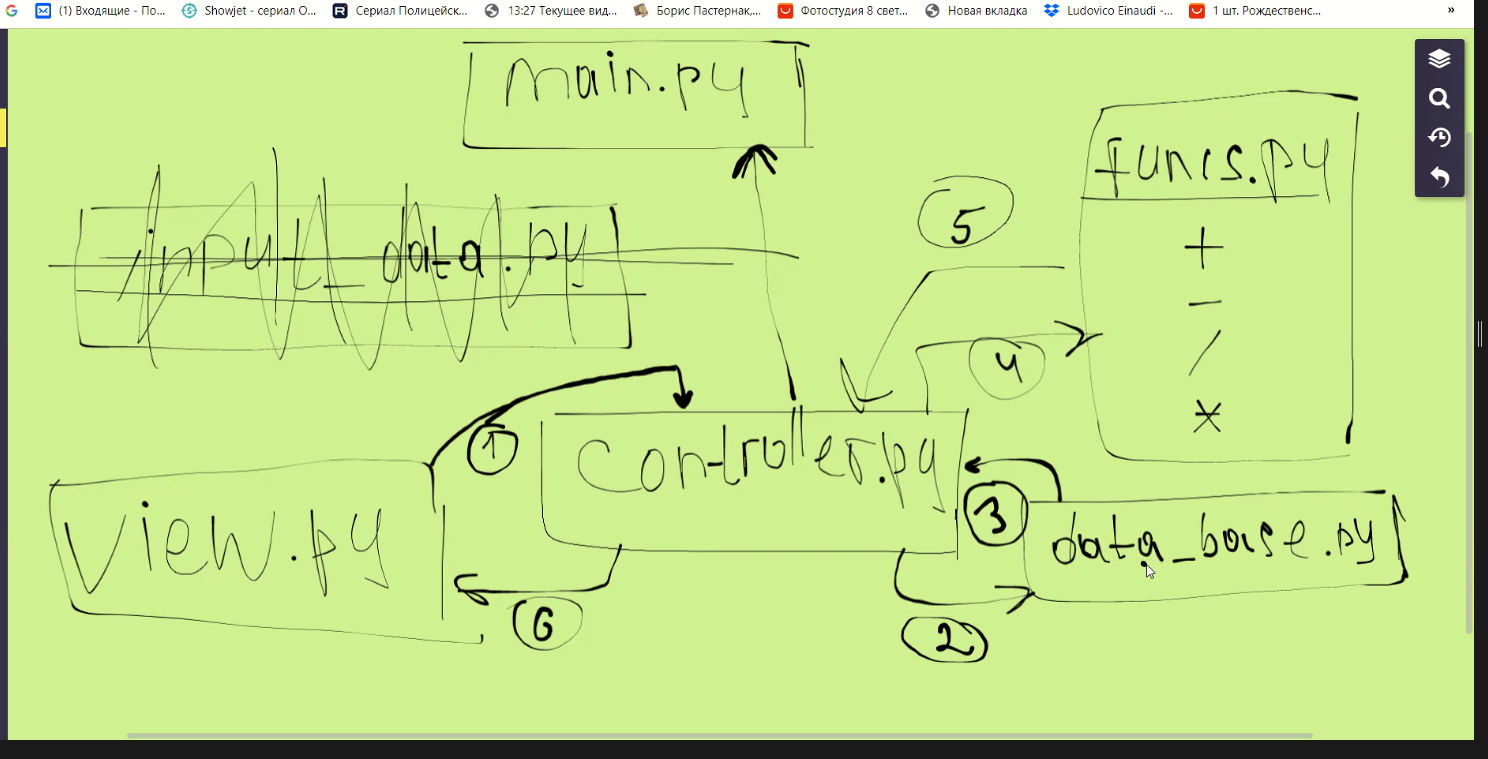 (1) Входящие - По...
Showjet - сериал О...
Сериал Полицейск...
13:27 Текущее вид...
Борис Пастернак,...
Фотостудия 8 свет...
Новая вкладка
Ludovico Einaudi -...
1 шт. Рождественс...
»
main.py
funcs.py
+
-
/
*
input_data.py
5
4
1
controller.py
3
view.py
data_base.py
6
2